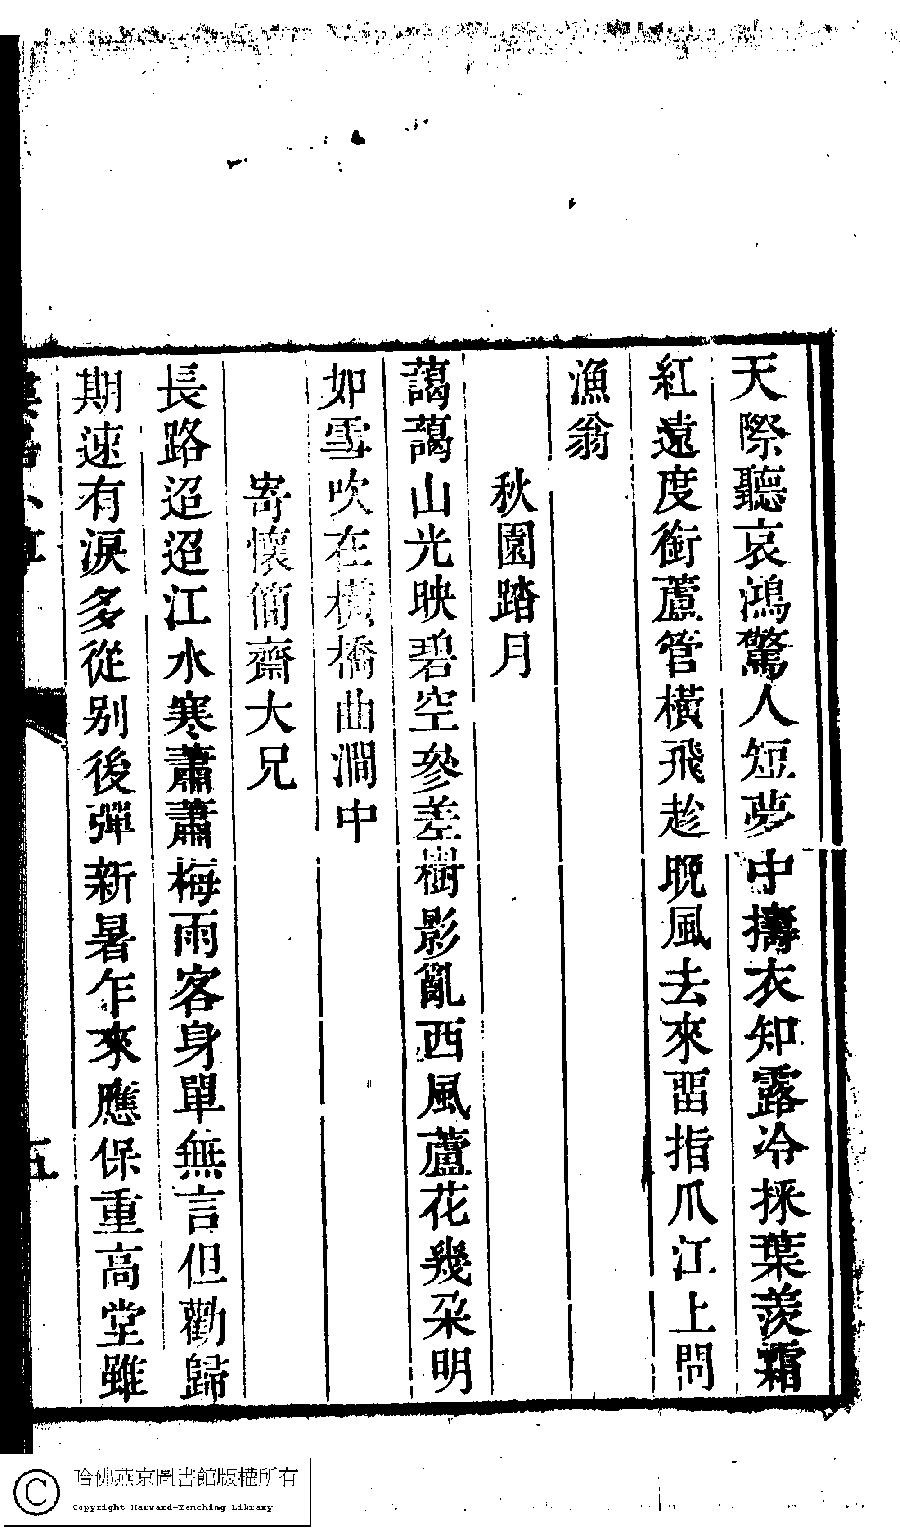 天際聽哀鴻驚人短夢中擣衣知露冷採葉羨霜
紅遠度銜蘆管橫飛趁晚風去來留指爪江上問
漁翁
秋園踏月
藹藹山光映碧空參差樹影亂西風蘆花幾朵明
如雪吹在橫橋曲澗中
寄懷簡齋大兄
長路迢迢江水寒蕭蕭梅雨客身單無言但勸歸
期速有淚多從别後彈新暑乍來應保重高堂雖
五
哈佛燕京圖書館版權所有
Copyright Harvard-Yenching Library